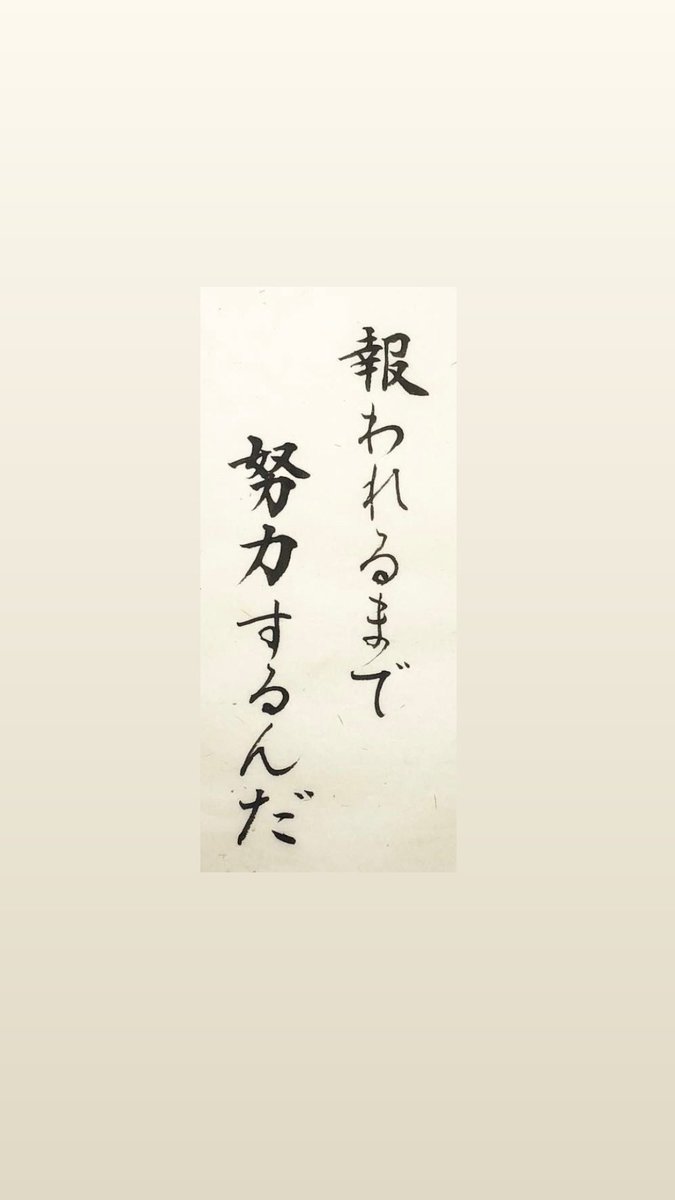 報われるまで
努力するんだ